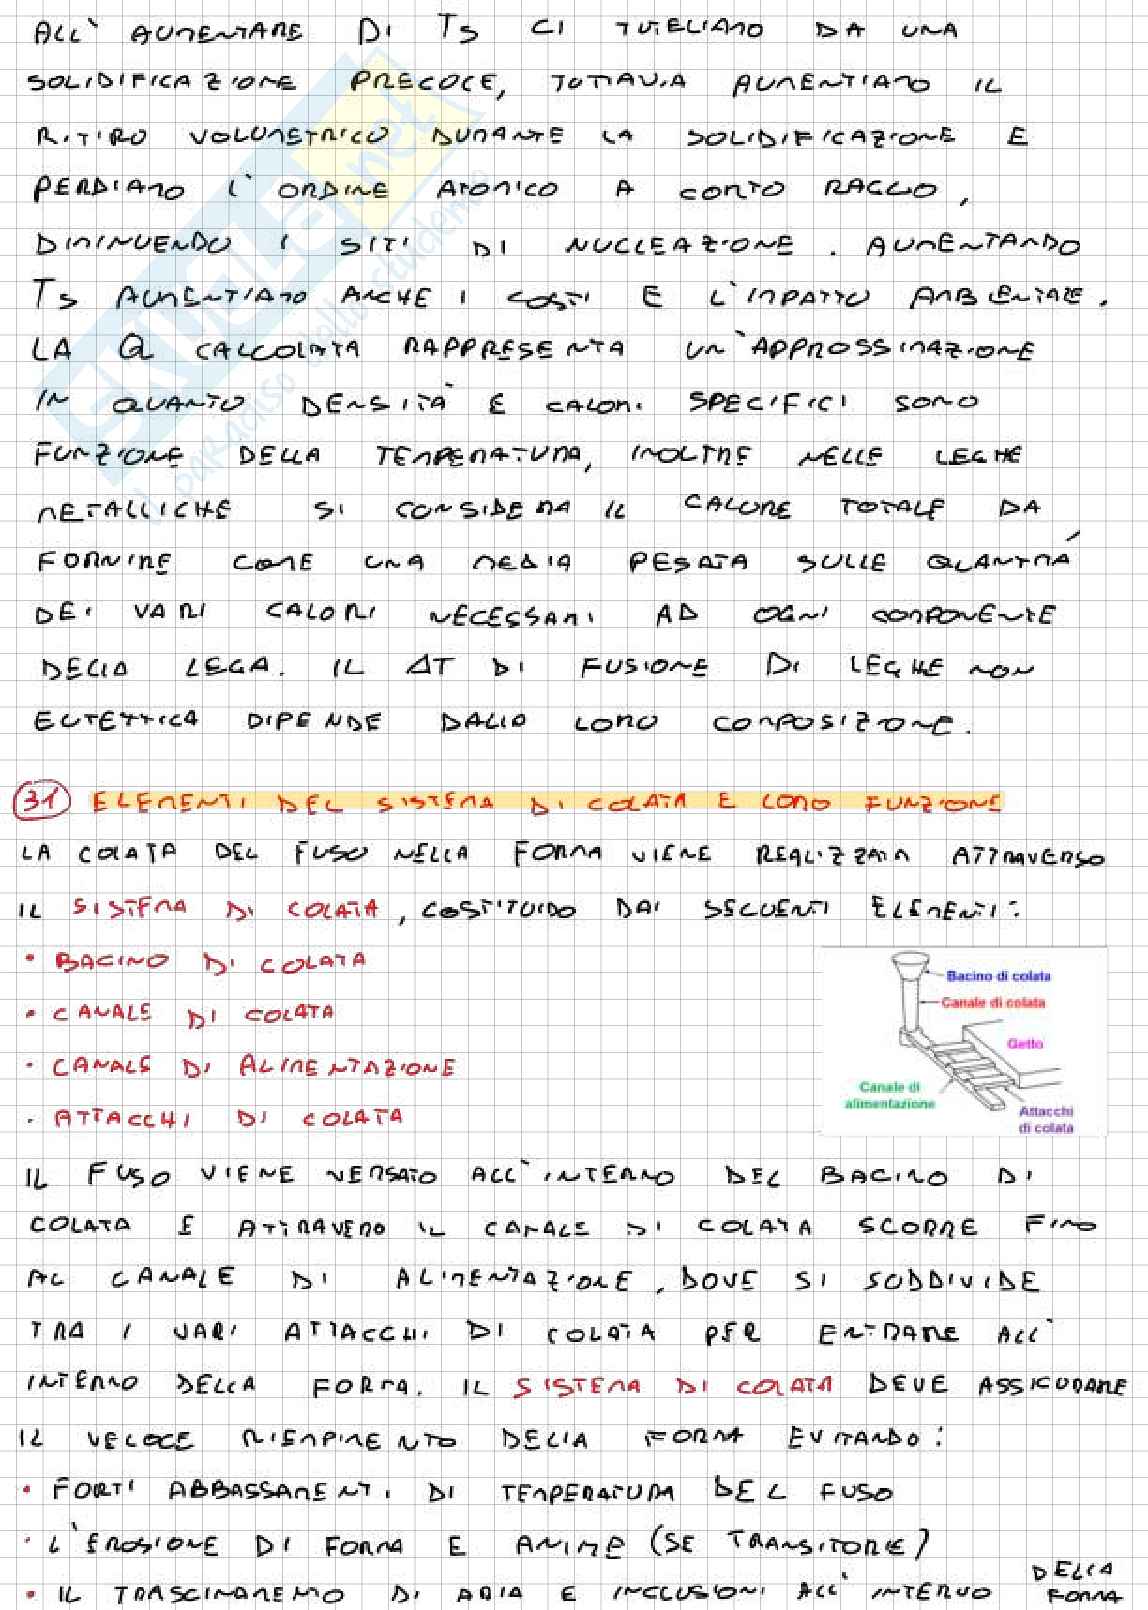 ALL' AUMENTARE DI Ts CI TUTELIAMO DA UNA
SOLIDIFICAZIONE PRECOCE, TUTTAVIA AUMENTIAMO IL
RITIRO VOLUMETRICO DURANTE LA SOLIDIFICAZIONE E
PERDIAMO L'ORDINE ATOMICO A CORTO RAGGIO,
DIMINUENDO I SITI DI NUCLEAZIONE. AUMENTANDO
Ts AUMENTIAMO ANCHE I COSTI E L'IMPATTO AMBIENTALE.
LA Q CALCOLATA RAPPRESENTA UN'APPROSSIMAZIONE
IN QUANTO DENSITÀ E CALORI SPECIFICI SONO
FUNZIONE DELLA TEMPERATURA, INOLTRE NELLE LEGHE
METALLICHE SI CONSIDERA IL CALORE TOTALE DA
FORNIRE COME UNA MEDIA PESATA SULLE QUANTITÀ
DEI VARI CALORI NECESSARI AD OGNI COMPONENTE
DELLA LEGA. IL ΔT DI FUSIONE DI LEGHE NON
EUTETTICA DIPENDE DALLO LORO COMPOSIZIONE.
31 ELEMENTI DEL SISTEMA DI COLATA E LORO FUNZIONE
LA COLATA DEL FUSO NELLA FORMA VIENE REALIZZATA ATTRAVERSO
IL SISTEMA DI COLATA, COSTITUIDO DAI SEGUENTI ELEMENTI:
• BACINO DI COLATA
• CANALE DI COLATA
• CANALE DI ALIMENTAZIONE
• ATTACCHI DI COLATA
Bacino di colata
Canale di colata
Getto
Canale di
alimentazione
Attacchi
di colata
IL FUSO VIENE VERSATO ALL'INTERNO DEL BACINO DI
COLATA E ATTRAVERO IL CANALE DI COLATA SCORRE FINO
AL CANALE DI ALIMENTAZIONE, DOVE SI SUDDIVIDE
TRA I VARI ATTACCHI DI COLATA PER ENTRARE ALL'
INTERNO DELLA FORMA. IL SISTEMA DI COLATA DEVE ASSICURARE
IL VELOCE RIEMPIMENTO DELLA FORMA EVITANDO:
• FORTI ABBASSAMENTI DI TEMPERATURA DEL FUSO
• L'EROSIONE DI FORMA E ANIME (SE TRANSITORIE)
• IL TRASCINAMEMO DI ARIA E INCLUSIONI ALL'INTERNO DELLA FORMA
SKUOLA.net
il paradiso dello studente